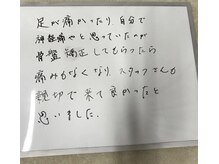 足が痛かったり、自分で
神経痛やと思っていたのが
骨盤矯正してもらったら
痛みもなくなり、スタッフさんも
親切で来て良かったと
思いました。